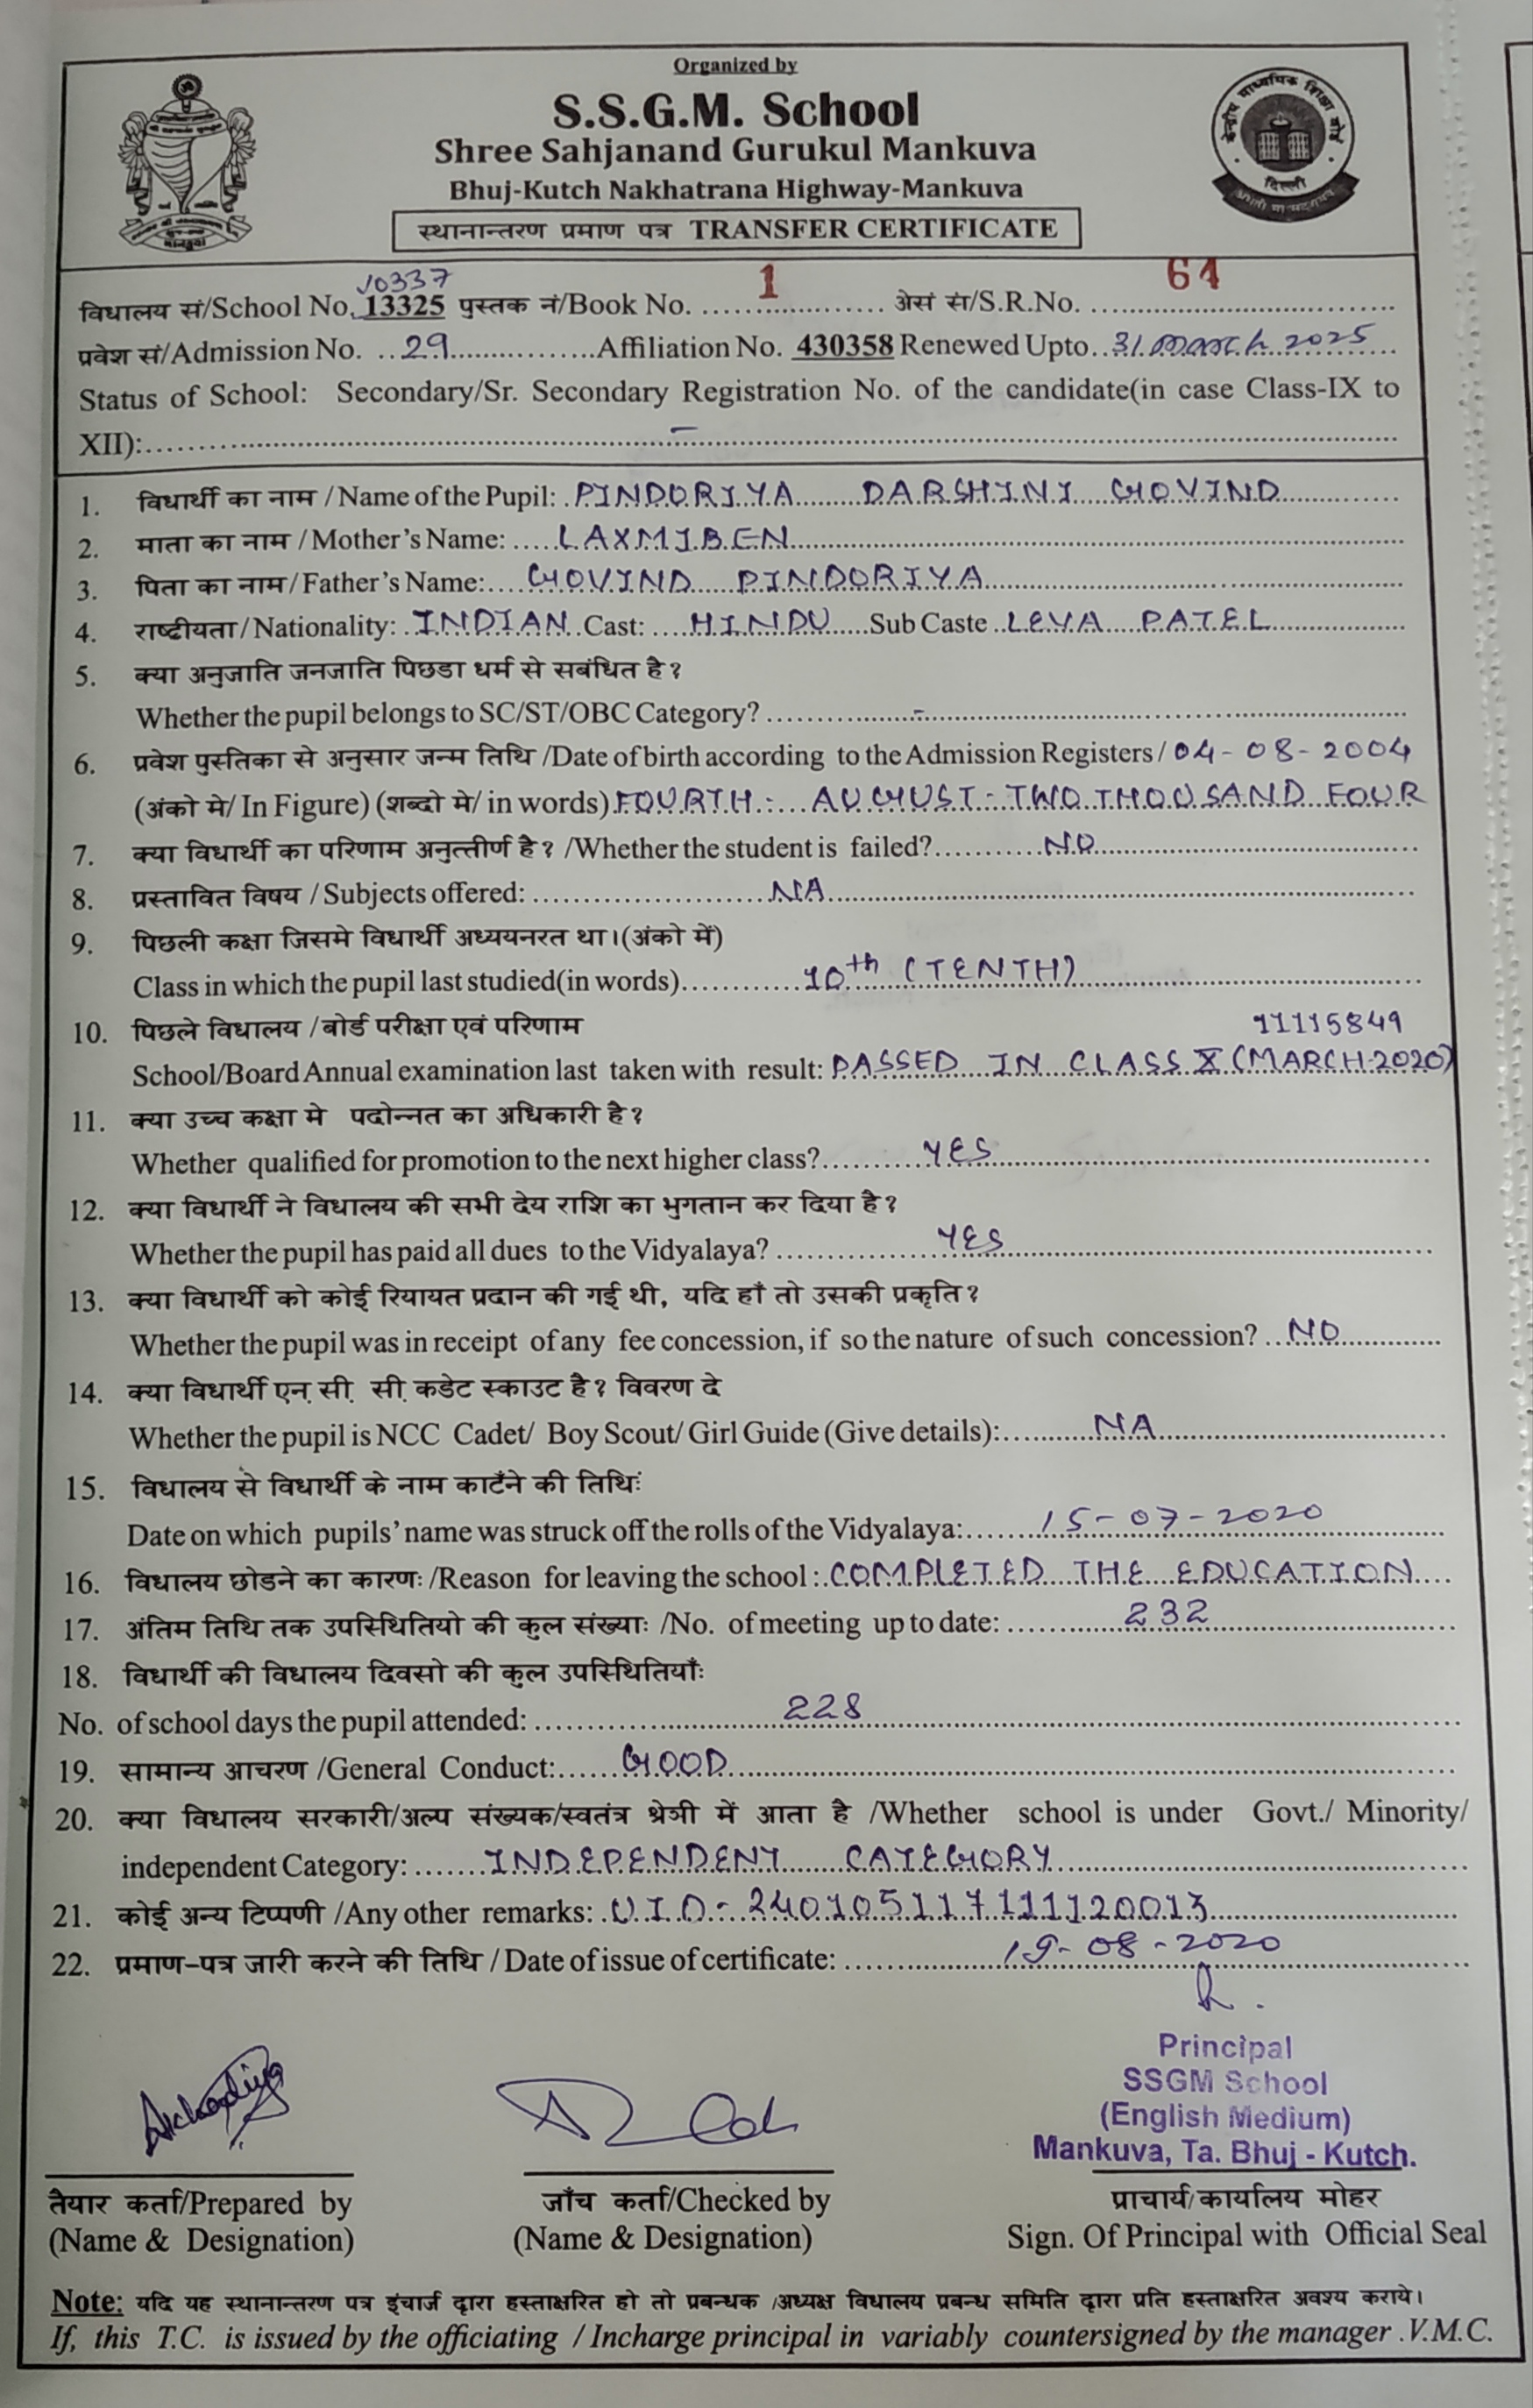 Organized by
S.S.G.M. School
Shree Sahjanand Gurukul Mankuva
Bhuj-Kutch Nakhatrana Highway-Mankuva
स्थानान्तरण प्रमाण पत्र TRANSFER CERTIFICATE
केन्द्रीय माध्यमिक शिक्षा बोर्ड
दिल्ली
10337
विधालय सं/School No. 13325 पुस्तक नं/Book No. 1 अेसं सं/S.R.No. 64
प्रवेश सं/Admission No. 29 Affiliation No. 430358 Renewed Upto 31 march 2025
Status of School: Secondary/Sr. Secondary Registration No. of the candidate(in case Class-IX to
XII): –
1. विधार्थी का नाम /Name of the Pupil: PINDORIYA DARSHINI GOVIND
2. माता का नाम /Mother's Name: LAXMIBEN
3. पिता का नाम/Father's Name: GOVIND PINDORIYA
4. राष्टीयता/Nationality: INDIAN Cast: HINDU Sub Caste LEVA PATEL
5. क्या अनुजाति जनजाति पिछडा धर्म से सबंधित है?
Whether the pupil belongs to SC/ST/OBC Category? -
6. प्रवेश पुस्तिका से अनुसार जन्म तिथि /Date of birth according to the Admission Registers/ 04-08-2004
(अंको मे/ In Figure) (शब्दो मे/ in words) FOURTH - AUGUST - TWO THOUSAND FOUR
7. क्या विधार्थी का परिणाम अनुत्तीर्ण है? /Whether the student is failed? NO
8. प्रस्तावित विषय /Subjects offered: NA
9. पिछली कक्षा जिसमे विधार्थी अध्ययनरत था।(अंको में)
Class in which the pupil last studied(in words) 10th (TENTH)
10. पिछले विधालय /बोर्ड परीक्षा एवं परिणाम 11115849
School/Board Annual examination last taken with result: PASSED IN CLASS X (MARCH-2020)
11. क्या उच्च कक्षा मे पदोन्नत का अधिकारी है?
Whether qualified for promotion to the next higher class? YES
12. क्या विधार्थी ने विधालय की सभी देय राशि का भुगतान कर दिया है?
Whether the pupil has paid all dues to the Vidyalaya? YES
13. क्या विधार्थी को कोई रियायत प्रदान की गई थी, यदि हाँ तो उसकी प्रकृति?
Whether the pupil was in receipt of any fee concession, if so the nature of such concession? NO
14. क्या विधार्थी एन. सी. सी. कडेट स्काउट है? विवरण दे
Whether the pupil is NCC Cadet/ Boy Scout/ Girl Guide (Give details): NA
15. विधालय से विधार्थी के नाम काटँने की तिथिः
Date on which pupils' name was struck off the rolls of the Vidyalaya: 15-07-2020
16. विधालय छोडने का कारणः /Reason for leaving the school: COMPLETED THE EDUCATION
17. अंतिम तिथि तक उपस्थितियो की कुल संख्याः /No. of meeting up to date: 232
18. विधार्थी की विधालय दिवसो की कुल उपस्थितियाँः
No. of school days the pupil attended: 228
19. सामान्य आचरण /General Conduct: GOOD
20. क्या विधालय सरकारी/अल्प संख्यक/स्वतंत्र श्रेञी में आता है /Whether school is under Govt./ Minority/
independent Category: INDEPENDENT CATEGORY
21. कोई अन्य टिप्पणी /Any other remarks: U.I.D- 240105117111120013
22. प्रमाण-पत्र जारी करने की तिथि / Date of issue of certificate: 19-08-2020
Principal
SSGM School
(English Medium)
Mankuva, Ta. Bhuj - Kutch.
तैयार कर्ता/Prepared by जाँच कर्ता/Checked by प्राचार्य/कार्यालय मोहर
(Name & Designation) (Name & Designation) Sign. Of Principal with Official Seal
Note: यदि यह स्थानान्तरण पत्र इंचार्ज द्वारा हस्ताक्षरित हो तो प्रबन्धक /अध्यक्ष विधालय प्रबन्ध समिति द्वारा प्रति हस्ताक्षरित अवश्य कराये।
If, this T.C. is issued by the officiating / Incharge principal in variably countersigned by the manager .V.M.C.